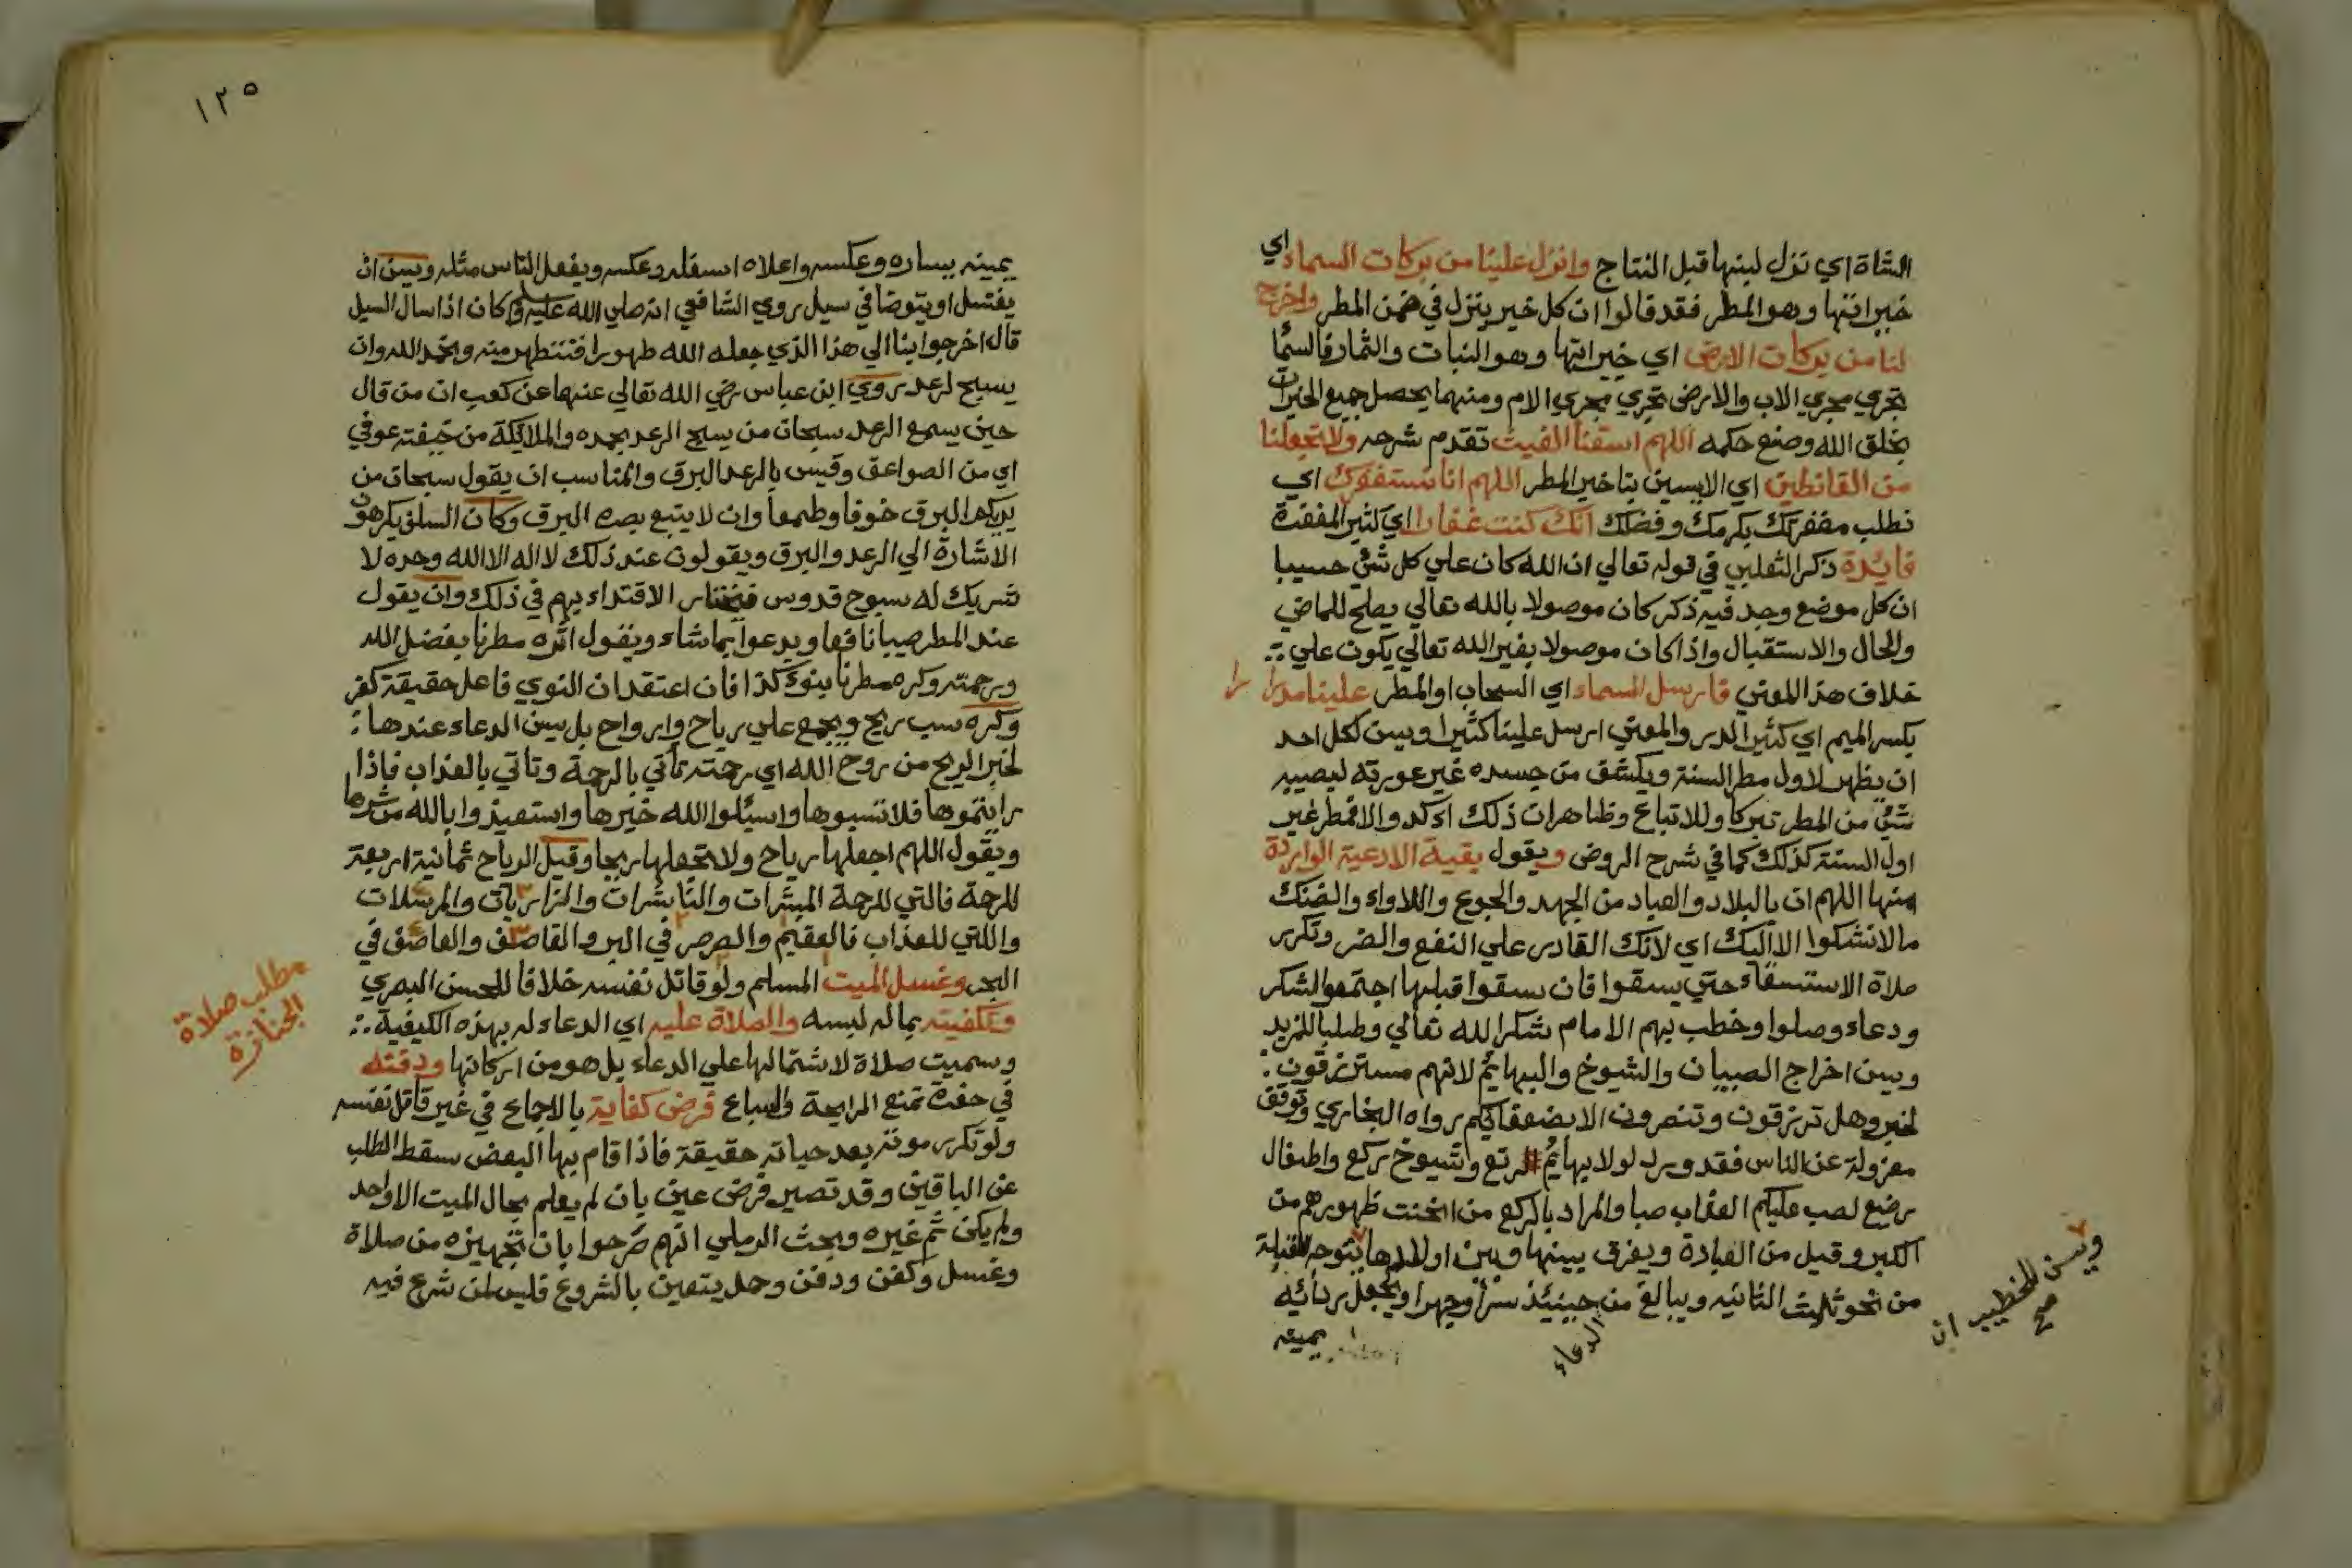 الشاة اي نزل لبنها قبل النتاج وانزل علينا من بركات السماء اي
خيراتها وهو المطر فقد قالوا ان كل خير ينزل في ضمن المطر واخرج
لنا من بركات الارض اي خيراتها وهو النبات والثمار فالسما
تجري مجري الاب والارض تجري مجري الام ومنهما يحصل جميع الخيرات
بخلق الله وصنع حكمه اللهم اسقنا الغيث تقدم شرحه ولا تجعلنا
من القانطين اي الايسين بتاخير المطر اللهم انا نستغفرك اي
نطلب مغفرتك بكرمك وفضلك انك كنت غفارا اي كثير المغفرة
فايدة ذكر الثعلبي في قوله تعالي ان الله كان علي كل شئ حسيبا
ان كل موضع وجد فيه ذكر كان موصولا بالله تعالي يصلح للماضي
والحال والاستقبال واذا كان موصولا بغير الله تعالي يكون علي
خلاف هذا المعني فارسل السماء اي السحاب او المطر علينا مدرارا
بكسر الميم اي كثير الدر والمعني ارسل علينا كثيرا ويسن لكل احد
ان يظهر لاول مطر السنة ويكشف من جسده غير عورته ليصيبه
شئ من المطر تبركا وللاتباع وظاهر ان ذلك اكد والا فمطر غير
اول السنة كذلك كما في شرح الروض ويقول بقية الادعية الواردة
منها اللهم ان بالبلاد والعباد من الجهد والجوع واللاواء والضنك
مالا نشكوا الا اليك اي لانك القادر علي النفع والضر وتكرر
صلاة الاستسقاء حتي يسقوا فان سقوا قبلها اجتمعوا لشكر
ودعاء وصلوا وخطب بهم الامام شكرا لله تعالي وطلبا للمزيد
ويسن اخراج الصبيان والشيوخ والبهايم لانهم مسترزقون
لخبر وهل ترزقون وتنصرون الا بضعفايكم رواه البخاري وتوقف
معزولة عن الناس فقد ورد لولا بهايم رتع وشيوخ ركع واطفال
رضع لصب عليكم العذاب صبا والمراد بالركع من انحنت ظهورهم من
الكبر وقيل من العبادة ويفرق بينها وبين اولادها يتوجه للقبلة
من نحو ثلث الثانيه ويبالغ من حينيئذ سرا وجهرا ويجعل ردائه
ويسن للخطيب ان
صح
الدعاء
يمينه
١٢٥
يمينه يساره وعكسه واعلاه اسفله وعكسه ويفعل الناس مثله ويسن ان
يغتسل او يتوضا في سيل روي الشافعي انه صلي الله عليه وسلم كان اذا سال السيل
قال اخرجوا بنا الي هذا الذي جعله الله طهورا فنتطهر منه ونحمد الله وان
يسبح لرعد روي ابن عباس رضي الله تعالي عنهما عن كعب ان من قال
حين يسمع الرعد سبحان من يسبح الرعد بحمده والملايكة من خيفته عوفي
اي من الصواعق وقيس بالرعد البرق والمناسب ان يقول سبحان من
يريكم البرق خوفا وطمعا وان لا يتبع بصره البرق وكان السلف يكرهون
الاشارة الي الرعد والبرق ويقولون عند ذلك لا اله الا الله وحده لا
شريك له سبوح قدوس فنختار الاقتداء بهم في ذلك وان يقول
عند المطر صيبا نافعا ويدعوا بما شاء ويقول اثره مطرنا بفضل الله
ورحمته وكره مطرنا بنوء كذا فان اعتقد ان النوي فاعل حقيقة كفر
وكره سب ريح ويجمع علي رياح وارواح بل يسن الدعاء عندها
لخبر الريح من روح الله اي رحمته تاتي بالرحمة وتاتي بالعذاب فاذا
رايتموها فلا تسبوها واسئلوا الله خيرها واستعيذوا بالله من شرها
ويقول اللهم اجعلها رياح ولا تجعلها ريحا وقيل الرياح ثمانية اربعة
للرحمة فالتي للرحمة المبشرات والناشرات والذاريات والمرسلات
واللتي للعذاب فالعقيم والصرصر في البر والقاصف والعاصف في
البحر وغسل الميت المسلم ولو قاتل نفسه خلافا للحسن البصري
وتكفينه بماله لبسه والصلاة عليه اي الدعاء له بهذه الكيفية
وسميت صلاة لاشتمالها علي الدعاء بل هو من اركانها ودفنه
في حفرة تمنع الرايحة والسباع فرض كفاية بالاجماع في غير قاتل نفسه
ولو تكرر موته بعد حياته حقيقة فاذا قام بها البعض سقط الطلب
عن الباقين وقد تصير فرض عين بان لم يعلم بحال الميت الا واحد
ولم يكن ثم غيره وبحث الرملي انهم صرحوا بان تجهيزه من صلاة
وغسل وكفن ودفن وحمل يتعين بالشروع فليس لمن شرع فيه
مطلب صلاة
الجنازة